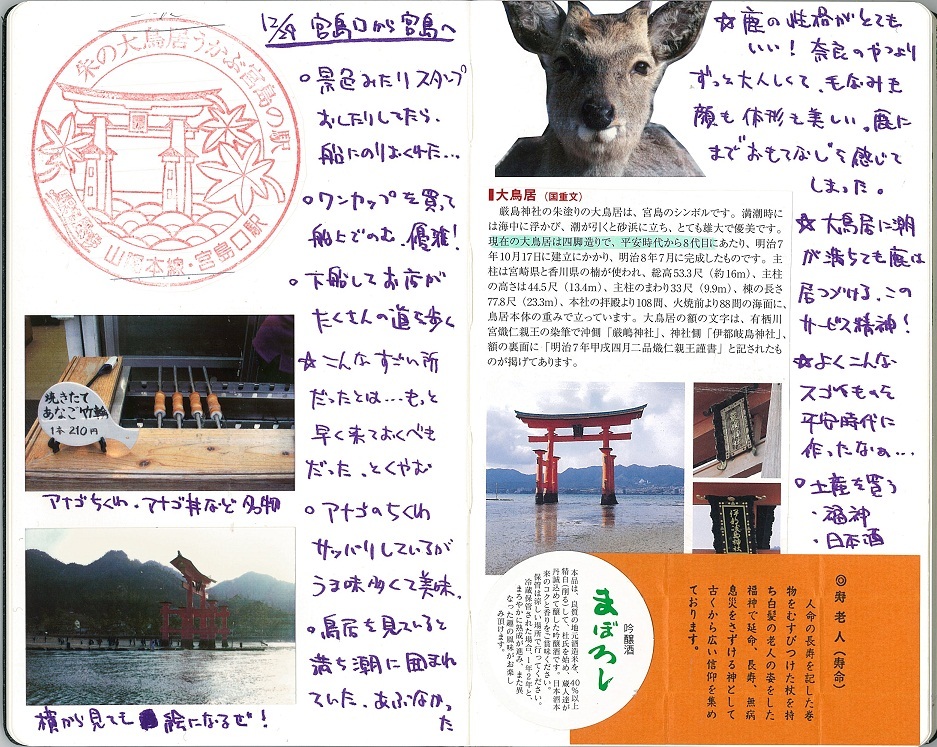 朱の大鳥居うかぶ宮島の駅
山陽本線・宮島口駅
12/29 宮島口から宮島へ
○景色みたりスタンプ
おしたりしてたら、
船にのりおくれた…
○ワンカップを買って
船上でのむ。優雅!
○下船してお店が
たくさんの道を歩く
☆こんなすごい所
だったとは…もっと
早く来ておくべき
だった、とくやむ
○アナゴのちくわ
サッパリしているが
うま味多くて美味。
○鳥居を見ていると
満ち潮に囲まれ
ていた。あぶなかっ
た
焼きたて
あなご竹輪
1本210円
アナゴちくわ・アナゴ丼など名物
横から見ても絵になるぜ!
☆鹿の性格がとても
いい!奈良のやつより
ずっと大人しくて、毛なみも
顔も体形も美しい。鹿に
までおもてなしを感じて
しまった。
大鳥居(国重文)
厳島神社の朱塗りの大鳥居は、宮島のシンボルです。満潮時に
は海中に浮かび、潮が引くと砂浜に立ち、とても雄大で優美です。
現在の大鳥居は四脚造りで、平安時代から8代目にあたり、明治7
年10月17日に建立にかかり、明治8年7月に完成したものです。主
柱は宮崎県と香川県の楠が使われ、総高53.3尺(約16m)、主柱
の高さは44.5尺(13.4m)、主柱のまわり33尺(9.9m)、棟の長さ
77.8尺(23.3m)、本社の拝殿より108間、火焼前より88間の海面に、
鳥居本体の重みで立っています。大鳥居の額の文字は、有栖川
宮熾仁親王の染筆で沖側「厳嶋神社」、神社側「伊都岐島神社」、
額の裏面に「明治7年甲戌四月二品熾仁親王謹書」と記されたも
のが掲げてあります。
☆大鳥居に潮
が満ちても鹿は
居つづける。この
サービス精神!
☆よくこんな
スゴイものを
平安時代に
作ったなぁ…
○土産を買う
・福神
・日本酒
嚴嶋神社
伊都岐島神社
吟醸酒
まぼろし
本品は、良質の地元酒造米を、40%以上
精白(削る)して、杜氏を始め、蔵人達が
丹誠込めて醸した吟醸酒です。日本酒本
来のコクと香りをご賞味ください。
保管は涼しい場所で行ってください。
冷蔵保管された場合、1年2年と、
まろやかに熟成が進み、また異
なった趣の風味がお楽し
み頂けます。
◎寿老人(寿命)
人命の長寿を記した巻
物をむすびつけた杖を持
ち白髪の老人の姿をした
福神で延命、長寿、無病
息災をさずける神として
古くから広い信仰を集め
ております。